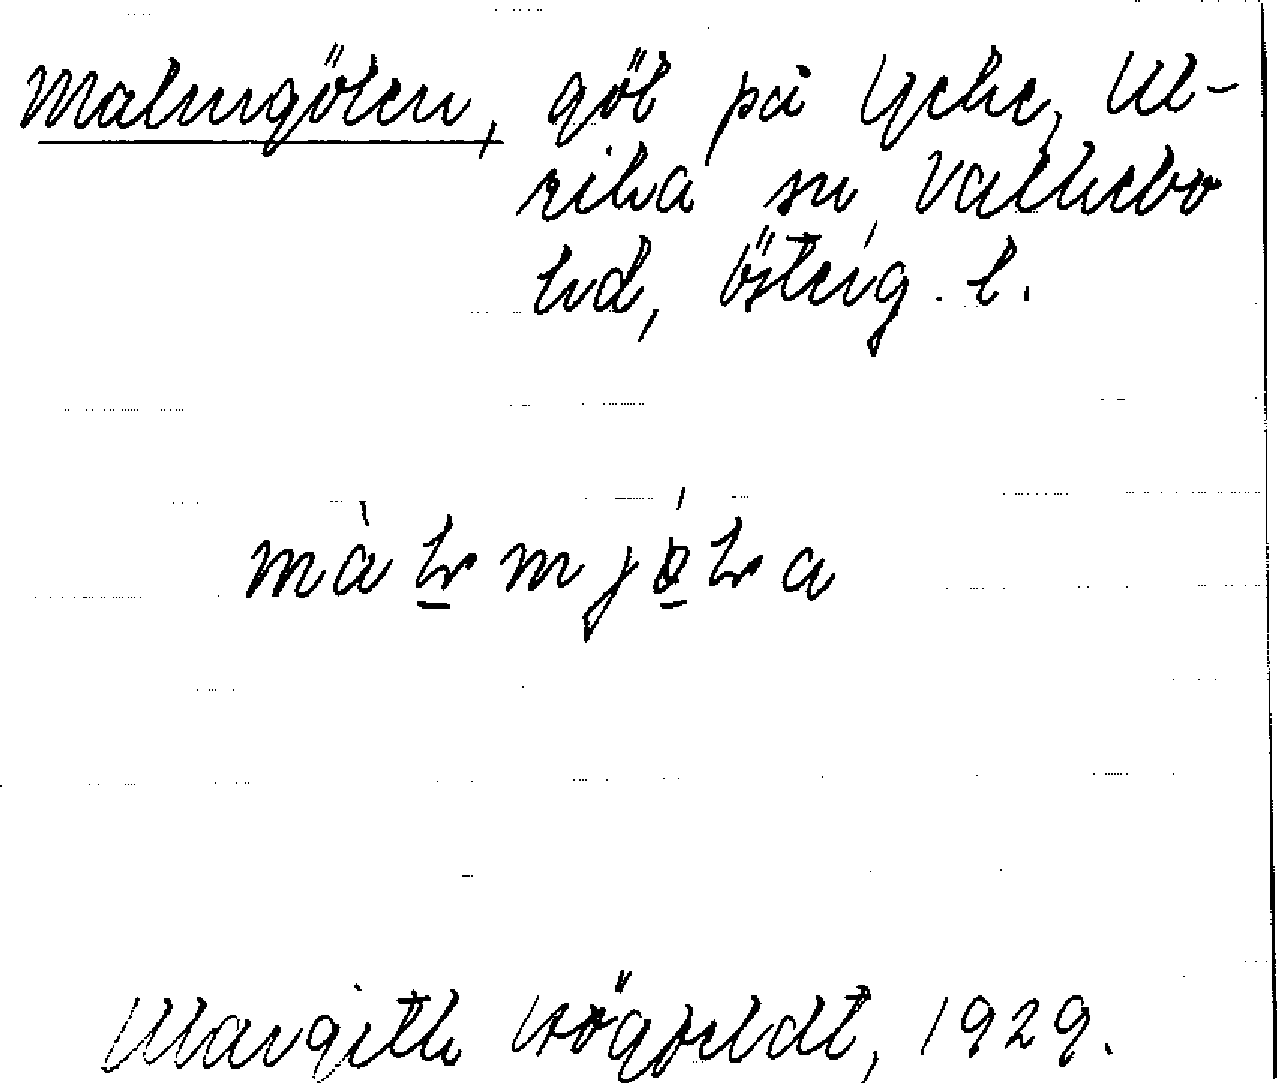 Malmgölen, göl på Lycke, Ul-
rika sn, Valkebo
hd, Österg. l.
màlmjö́la
Margith Högfeldt, 1929.